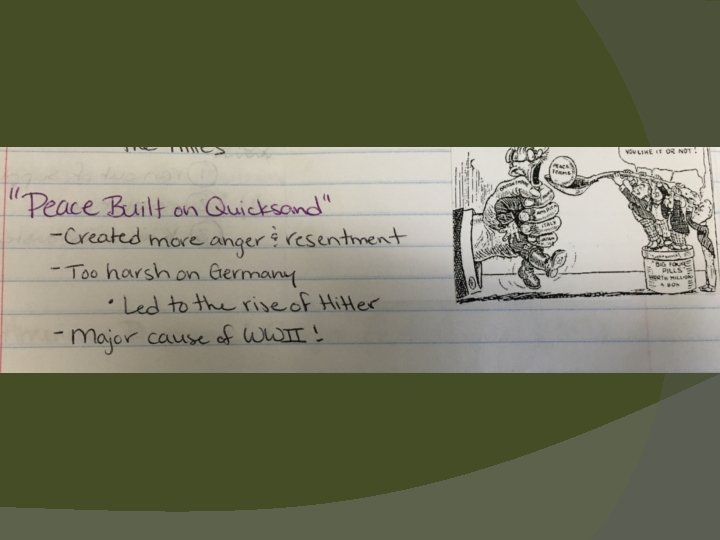 The Allies
"Peace Built on Quicksand"
- Created more anger & resentment
- Too harsh on Germany
• Led to the rise of Hitler
- Major cause of WWII!
YOU LIKE IT OR NOT!
PEACE
TERMS
"BIG FOUR"
PILLS
WORTH MILLION
A BOX